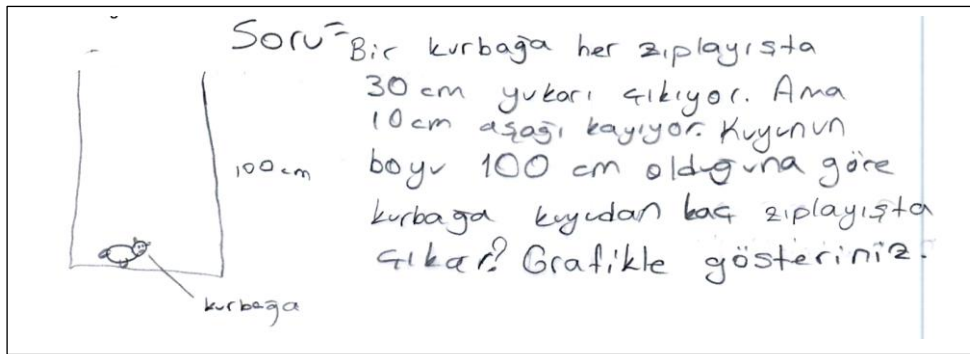 Soru= Bir kurbağa her zıplayışta
30 cm yukarı çıkıyor. Ama
10 cm aşağı kayıyor. Kuyunun
boyu 100 cm olduğuna göre
kurbağa kuyudan kaç zıplayışta
çıkar? Grafikle gösteriniz.
100 cm
kurbağa